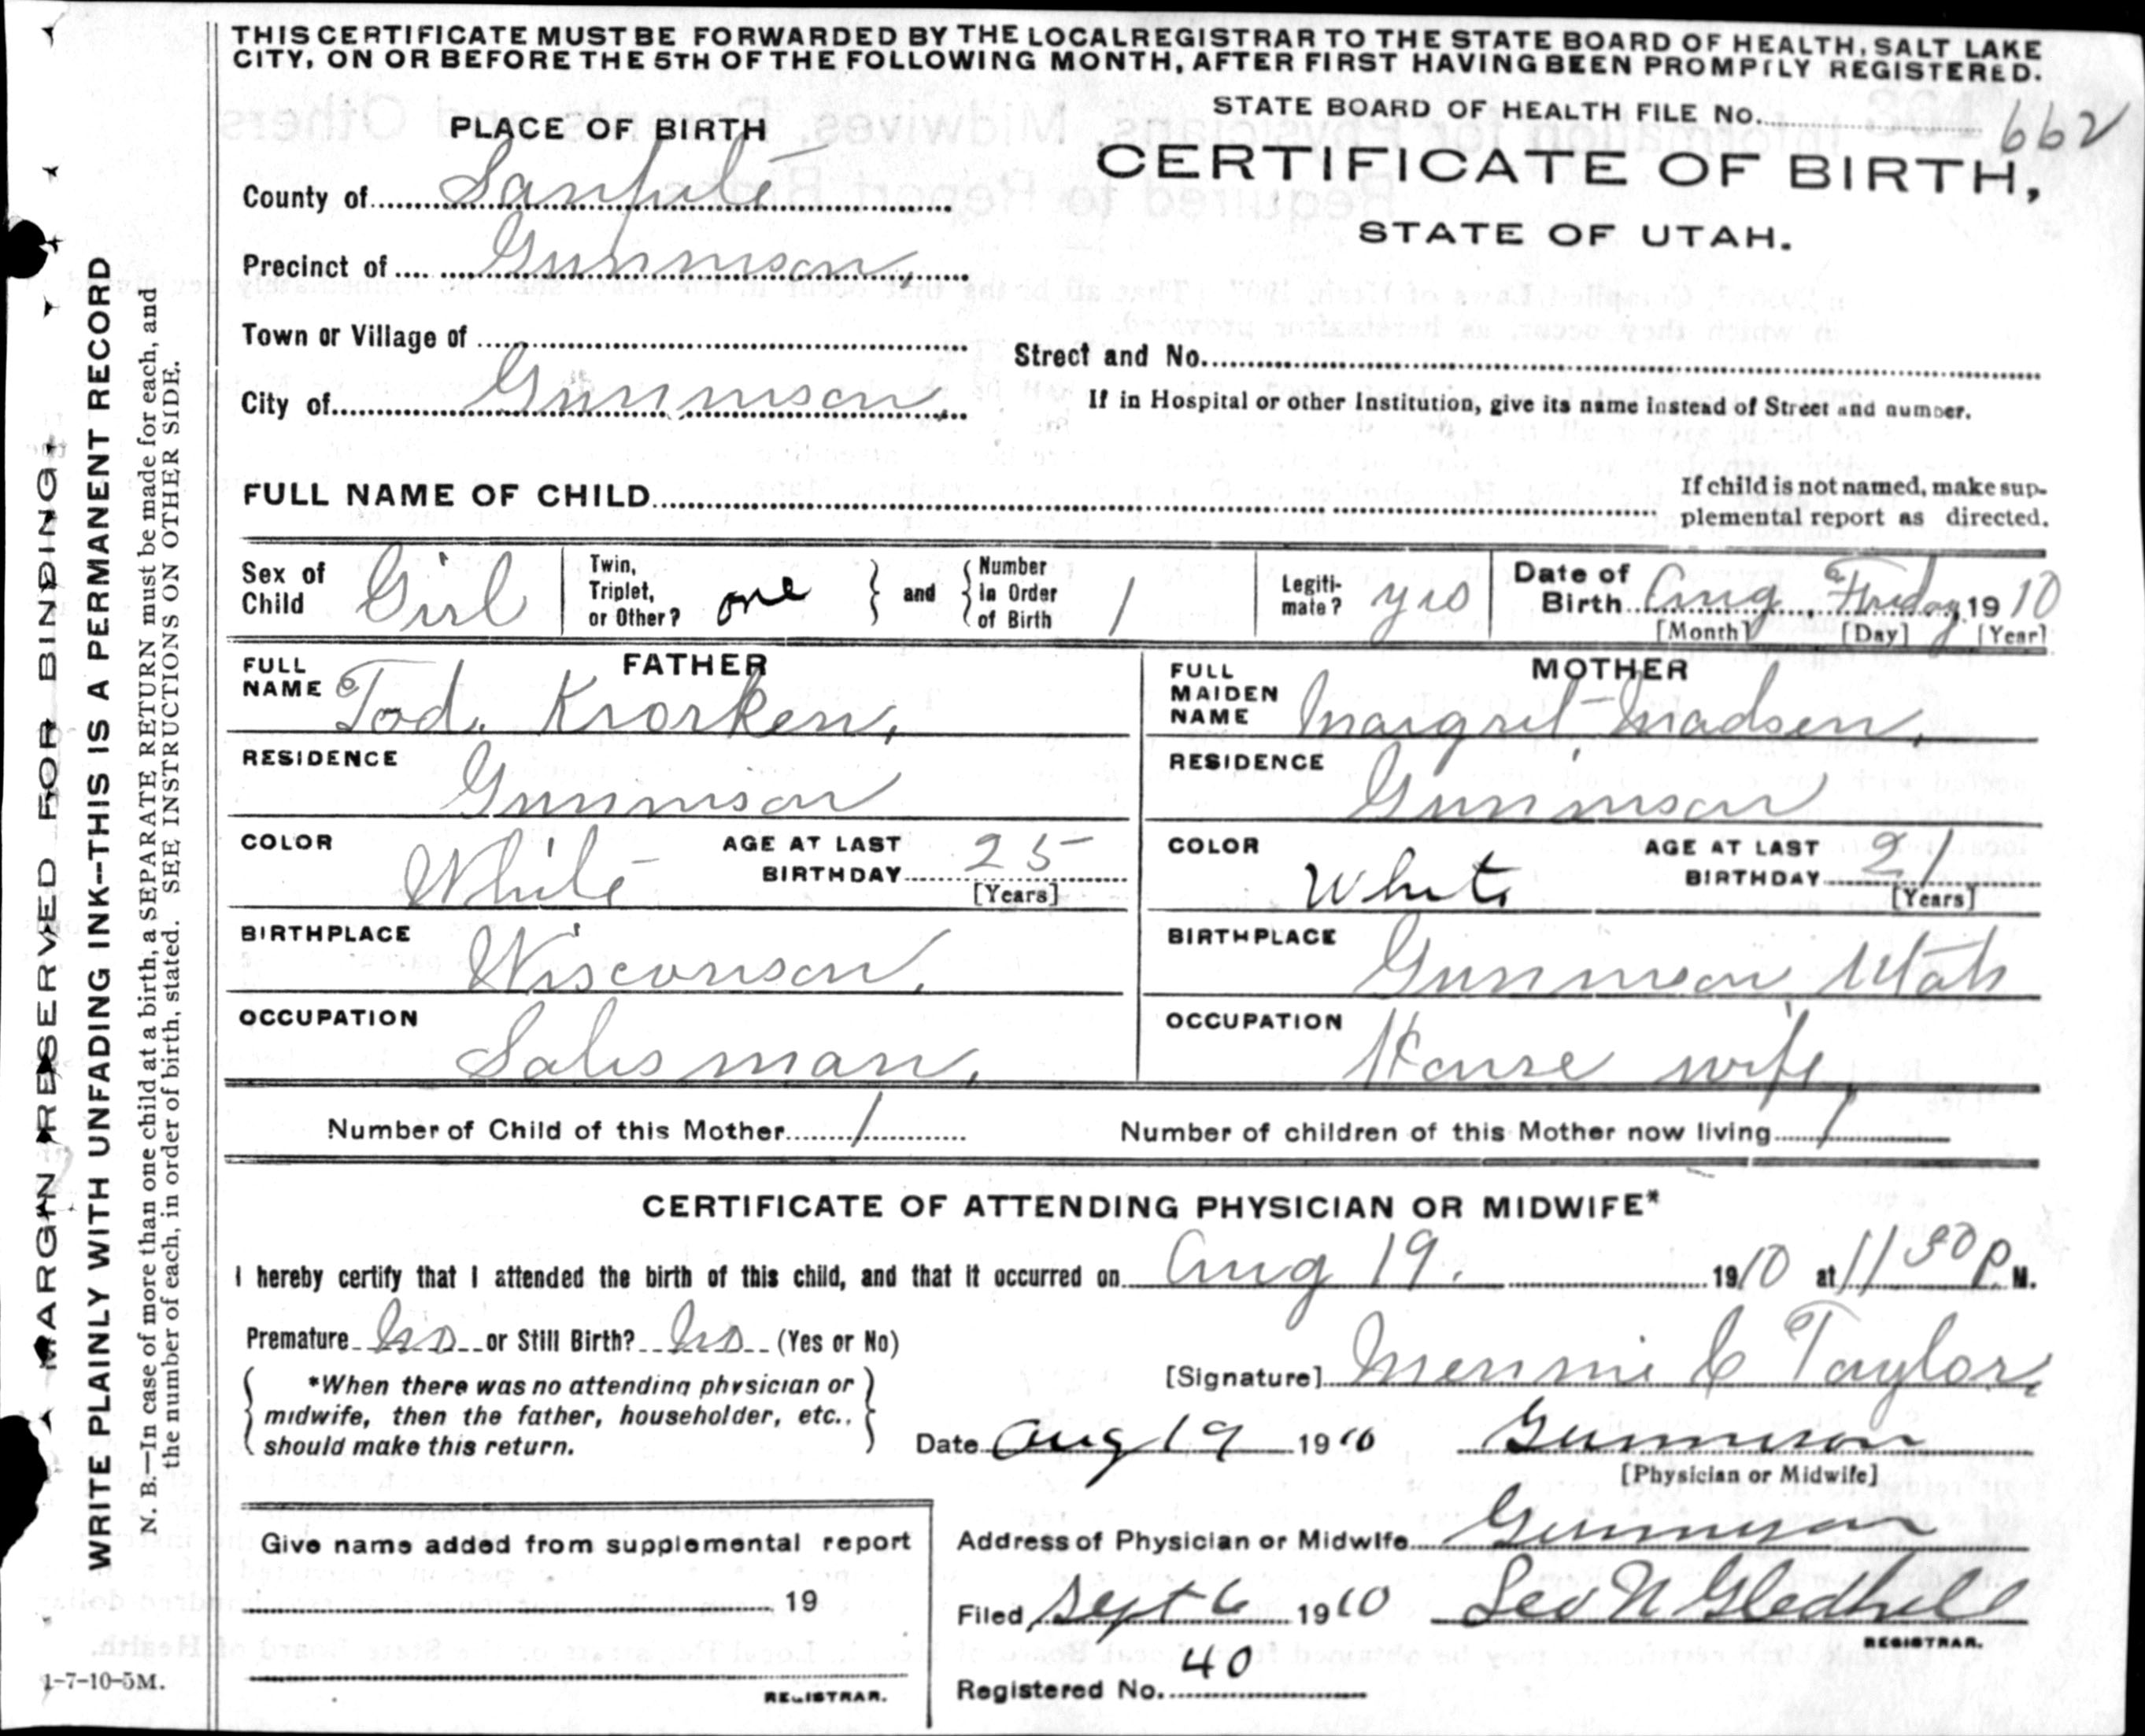 THIS CERTIFICATE MUST BE FORWARDED BY THE LOCAL REGISTRAR TO THE STATE BOARD OF HEALTH, SALT LAKE
CITY, ON OR BEFORE THE 5TH OF THE FOLLOWING MONTH, AFTER FIRST HAVING BEEN PROMPTLY REGISTERED.
STATE BOARD OF HEALTH FILE No. 662
PLACE OF BIRTH
CERTIFICATE OF BIRTH,
STATE OF UTAH.
County of Sanpete
Precinct of Gunnison,
Town or Village of
Street and No.
City of Gunnison,
If in Hospital or other Institution, give its name instead of Street and number.
FULL NAME OF CHILD
If child is not named, make sup-
plemental report as directed.
Sex of Child Girl
Twin, Triplet, or Other? one and Number in Order of Birth 1
Legiti-mate? yes
Date of Birth Aug, Friday 1910
[Month] [Day] [Year]
FATHER
FULL NAME Tod. Krorken,
MOTHER
FULL MAIDEN NAME Margrit Madsen,
RESIDENCE Gunnison
RESIDENCE Gunnison
COLOR White AGE AT LAST BIRTHDAY 25 [Years]
COLOR White AGE AT LAST BIRTHDAY 21 [Years]
BIRTHPLACE Wisconson,
BIRTHPLACE Gunnison Utah
OCCUPATION Salesman,
OCCUPATION House wife,
Number of Child of this Mother 1
Number of children of this Mother now living 1
CERTIFICATE OF ATTENDING PHYSICIAN OR MIDWIFE*
I hereby certify that I attended the birth of this child, and that it occurred on Aug 19. 1910 at 11 30 P. M.
Premature No or Still Birth? No (Yes or No)
[Signature] Mennie C Taylor,
*When there was no attending physician or
midwife, then the father, householder, etc.,
should make this return.
Date Aug 19 1910 Gunnison
[Physician or Midwife]
Give name added from supplemental report
19
REGISTRAR.
Address of Physician or Midwife Gunnison
Filed, Sept 6 1910 Leo N Gledhill
REGISTRAR.
Registered No. 40
MARGIN RESERVED FOR BINDING
WRITE PLAINLY WITH UNFADING INK--THIS IS A PERMANENT RECORD
N. B.—In case of more than one child at a birth, a SEPARATE RETURN must be made for each, and
the number of each, in order of birth, stated. SEE INSTRUCTIONS ON OTHER SIDE.
1-7-10-5M.